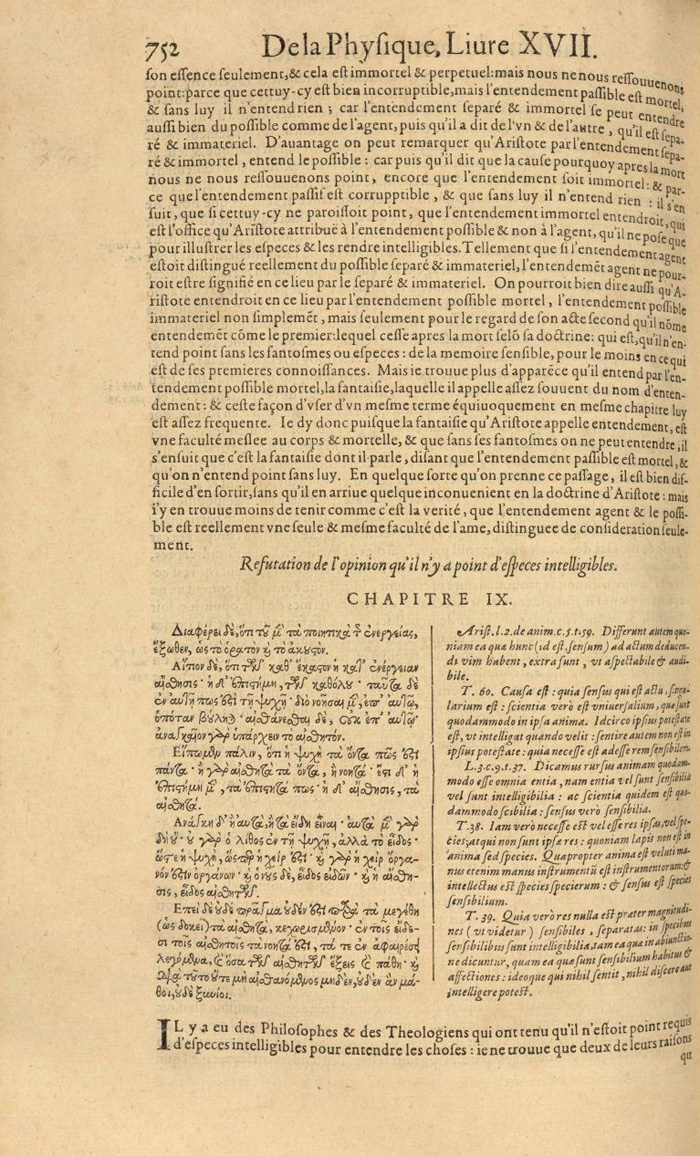 752 De la Physique, Liure XVII.
son essence seulement,& cela est immortel & perpetuel:mais nous ne nous ressouuenons
point:parce que cettuy-cy est bien incorruptible,mais l'entendement passible est mortel,
& sans luy il n'entend rien ; car l'entendement separé & immortel se peut entendre
aussi bien du possible comme de l'agent, puis qu'il a dit de l'vn & de l'autre , qu'il est sepa-
ré & immateriel. D'auantage on peut remarquer qu'Aristote par l'entendement sepa-
ré & immortel , entend le possible : car puis qu'il dit que la cause pourquoy apres la mort
nous ne nous ressouuenons point, encore que l'entendement soit immortel: & par-
ce que l'entendement passif est corrupptible , & que sans luy il n'entend rien : il s'en
suit, que si cettuy-cy ne paroissoit point , que l'entendement immortel entendroit, qui
est l'office qu'Aristote attribuë à l'entendement possible & non à l'agent, qu'il ne pose que
pour illustrer les especes & les rendre intelligibles. Tellement que si l'entendement agent
estoit distingué reellement du possible separé & immateriel, l'entendemẽt agent ne pour-
roit estre signifié en ce lieu par le separé & immateriel. On pourroit bien dire aussi qu'A-
ristote entendroit en ce lieu par l'entendement possible mortel , l'entendement possible
immateriel non simplemẽt , mais seulement pour le regard de son acte second qu'il nõme
entendemẽt cõme le premier:lequel cesse apres la mort selõ sa doctrine: qui est,qu'il n'en-
tend point sans les fantosmes ou especes : de la memoire sensible, pour le moins en ce qui
est de ses premieres connoissances. Mais ie trouue plus d'apparẽce qu'il entend par l'en-
tendement possible mortel,la fantaisie,laquelle il appelle assez souuent du nom d'enten-
dement : & ceste façon d'vser d'vn mesme terme équiuoquement en mesme chapitre luy
est assez frequente. Ie dy donc puisque la fantaisie qu'Aristote appelle entendement, est
vne faculté meslee au corps & mortelle, & que sans ses fantosmes on ne peut entendre , il
s'ensuit que c'est la fantaisie dont il parle, disant que l'entendement passible est mortel, &
qu'on n'entend point sans luy. En quelque sorte qu'on prenne ce passage, il est bien dif-
ficile d'en sortir,sans qu'il en arriue quelque inconuenient en la doctrine d'Aristote : mais
i'y en trouue moins de tenir comme c'est la verité , que l'entendement agent & le possi-
ble est reellement vne seule & mesme faculté de l'ame, distinguee de consideration seule-
ment.
Refutation de l'opinion qu'il n'y a point d'especes intelligibles.
CHAPITRE IX.
Διαφέρει δὲ, ὅτι τοῦ μὲν τὰ ποιητικὰ τῆς ἐνεργείας,
ἔξωθεν, ὡς τὸ ὁρατὸν καὶ τὸ ἀκουστόν.
Αἴτιον δὲ, ὅτι τῶν καθ' ἕκαστον ἡ κατ' ἐνέργειαν
αἴσθησις· ἡ δ' ἐπιστήμη, τῶν καθόλου· ταῦτα δὲ
ἐν αὐτῇ πως ἐστὶ τῇ ψυχῇ· διὸ νοῆσαι μὲν, ἐπ' αὐτῷ,
ὁπόταν βούληται· αἰσθάνεσθαι δὲ, οὐκ ἐπ' αὐτῷ·
ἀναγκαῖον γὰρ ὑπάρχειν τὸ αἰσθητόν.
Εἴπωμεν πάλιν, ὅτι ἡ ψυχὴ τὰ ὄντα πώς ἐστι
πάντα· ἢ γὰρ αἰσθητὰ τὰ ὄντα, ἢ νοητά· ἔστι δ' ἡ
ἐπιστήμη μὲν, τὰ ἐπιστητά πως· ἡ δ' αἴσθησις, τὰ
αἰσθητά.
Ἀνάγκη δ' ἢ αὐτὰ, ἢ τὰ εἴδη εἶναι· αὐτὰ μὲν γὰρ
δὴ οὔ· οὐ γὰρ ὁ λίθος ἐν τῇ ψυχῇ, ἀλλὰ τὸ εἶδος·
ὥστε ἡ ψυχὴ, ὥσπερ ἡ χείρ ἐστι· καὶ γὰρ ἡ χεὶρ ὄργα-
νόν ἐστιν ὀργάνων· καὶ ὁ νοῦς δὲ, εἶδος εἰδῶν· καὶ ἡ αἴσθη-
σις, εἶδος αἰσθητῶν.
Ἐπεὶ δὲ οὐδὲ πρᾶγμα οὐδέν ἐστι παρὰ τὰ μεγέθη
(ὡς δοκεῖ) τὰ αἰσθητὰ, κεχωρισμένον· ἐν τοῖς εἴδε-
σι τοῖς αἰσθητοῖς τὰ νοητά ἐστι, τά τε ἐν ἀφαιρέσει
λεγόμενα, καὶ ὅσα τῶν αἰσθητῶν ἕξεις καὶ πάθη· καὶ
διὰ τοῦτο οὔτε μὴ αἰσθανόμενος μηδὲν, οὐδὲν ἂν μά-
θοι, οὐδὲ ξυνίοι.
Arist. l. 2. de anim. c. 5. t. 59. Differunt autem quo-
niam ea quæ hunc (id est, sensum) ad actum deducen-
di vim habent, extra sunt , vt aspectabile & audi-
bile.
T. 60. Causa est : quia sensus qui est actu, singu-
larium est : scientia verò est vniuersalium, quæ sunt
quodammodo in ipsa anima. Idcirco ipsius potestate
est, vt intelligat quando velit : sentire autem non est in
ipsius potestate : quia necesse est adesse rem sensibilem.
L. 3. c. 9. t. 37. Dicamus rursus animam quodam-
modo esse omnia entia, nam entia vel sunt sensibilia
vel sunt intelligibilia : ac scientia quidem est quo-
dammodo scibilia : sensus verò sensibilia.
T. 38. Iam verò necesse est vel esse res ipsas, vel spe-
cies; atqui non sunt ipsa res : quoniam lapis non est in
anima sed species. Quapropter anima est veluti ma-
nus etenim manus instrumentũ est instrumentorum: &
intellectus est species specierum : & sensus est species
sensibilium.
T. 39. Quia verò res nulla est præter magnitudi-
nes ( vt videtur ) sensibiles , separata: in speciebus
sensibilibus sunt intelligibilia, tam ea quæ in abiunctio-
ne dicuntur, quam ea quæ sunt sensibilium habitus &
affectiones : ideoque qui nihil sentit , nihil discere aut
intelligere potest.
IL y a eu des Philosophes & des Theologiens qui ont tenu qu'il n'estoit point requis
d'especes intelligibles pour entendre les choses : ie ne trouue que deux de leurs raisons
qui